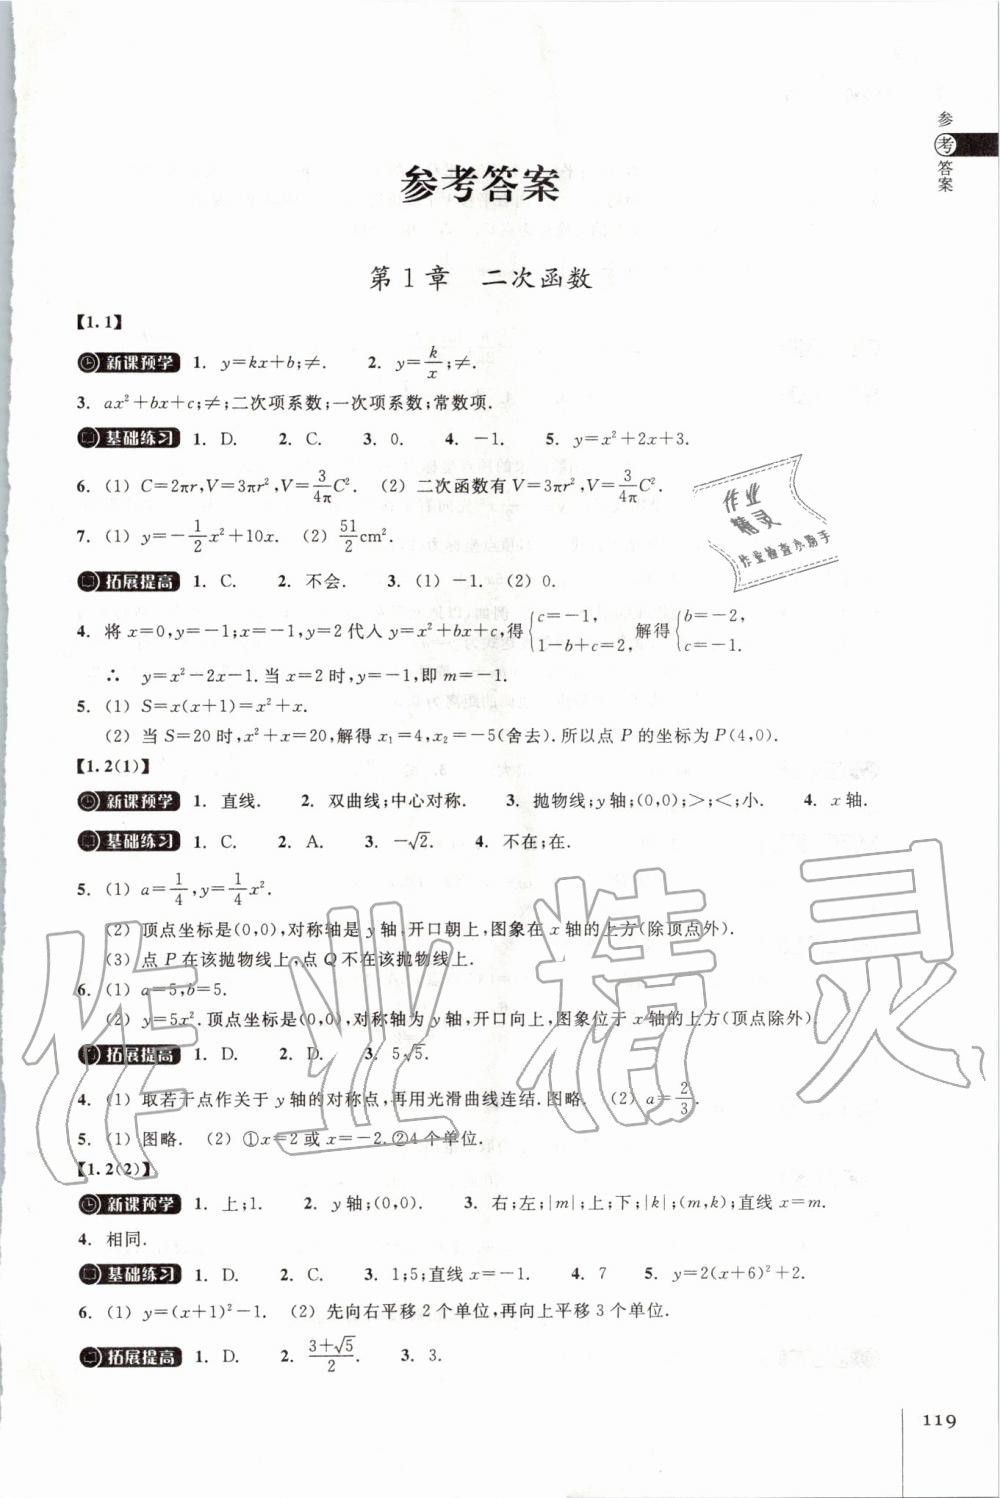 参考答案
参考答案
第1章 二次函数
【1.1】
新课预学 1. y=kx+b;≠. 2. y=k/x;≠.
3. ax²+bx+c;≠;二次项系数;一次项系数;常数项.
基础练习 1. D. 2. C. 3. 0. 4. -1. 5. y=x²+2x+3.
6. (1) C=2πr,V=3πr²,V=3/4π C². (2) 二次函数有V=3πr²,V=3/4π C².
7. (1) y=-1/2 x²+10x. (2) 51/2 cm².
拓展提高 1. C. 2. 不会. 3. (1) -1. (2) 0.
4. 将x=0,y=-1;x=-1,y=2代入y=x²+bx+c,得{c=-1, 1-b+c=2, 解得{b=-2, c=-1.
∴ y=x²-2x-1.当x=2时,y=-1,即m=-1.
5. (1) S=x(x+1)=x²+x.
(2) 当S=20时,x²+x=20,解得x₁=4,x₂=-5(舍去).所以点P的坐标为P(4,0).
【1.2(1)】
新课预学 1. 直线. 2. 双曲线;中心对称. 3. 抛物线;y轴;(0,0);>;<;小. 4. x轴.
基础练习 1. C. 2. A. 3. -√2. 4. 不在;在.
5. (1) a=1/4,y=1/4 x².
(2) 顶点坐标是(0,0),对称轴是y轴.开口朝上,图象在x轴的上方(除顶点外).
(3) 点P在该抛物线上,点Q不在该抛物线上.
6. (1) a=5,b=5.
(2) y=5x².顶点坐标是(0,0),对称轴为y轴,开口向上,图象位于x轴的上方(顶点除外).
拓展提高 1. D. 2. D. 3. 5√5.
4. (1) 取若干点作关于y轴的对称点,再用光滑曲线连结.图略. (2) a=2/3.
5. (1) 图略. (2) ①x=2或x=-2.②4个单位.
【1.2(2)】
新课预学 1. 上;1. 2. y轴;(0,0). 3. 右;左;|m|;上;下;|k|;(m,k);直线x=m.
4. 相同.
基础练习 1. D. 2. C. 3. 1;5;直线x=-1. 4. 7 5. y=2(x+6)²+2.
6. (1) y=(x+1)²-1. (2) 先向右平移2个单位,再向上平移3个单位.
拓展提高 1. D. 2. (3+√5)/2. 3. 3.
119
作业
精灵
作业检查小助手
作业精灵